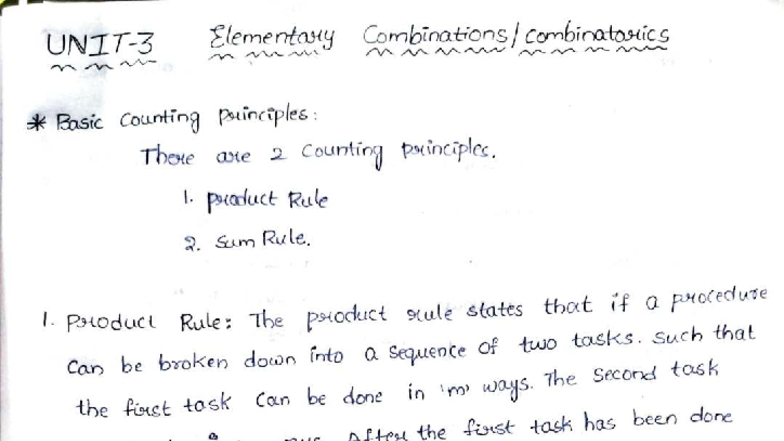 UNIT-3 Elementary Combinations/combinatorics
* Basic Counting principles:
There are 2 Counting principles.
1. product Rule
2. Sum Rule.
1. Product Rule: The product rule states that if a procedure
can be broken down into a sequence of two tasks. Such that
the first task can be done in 'm' ways. The Second task
After the first task has been done